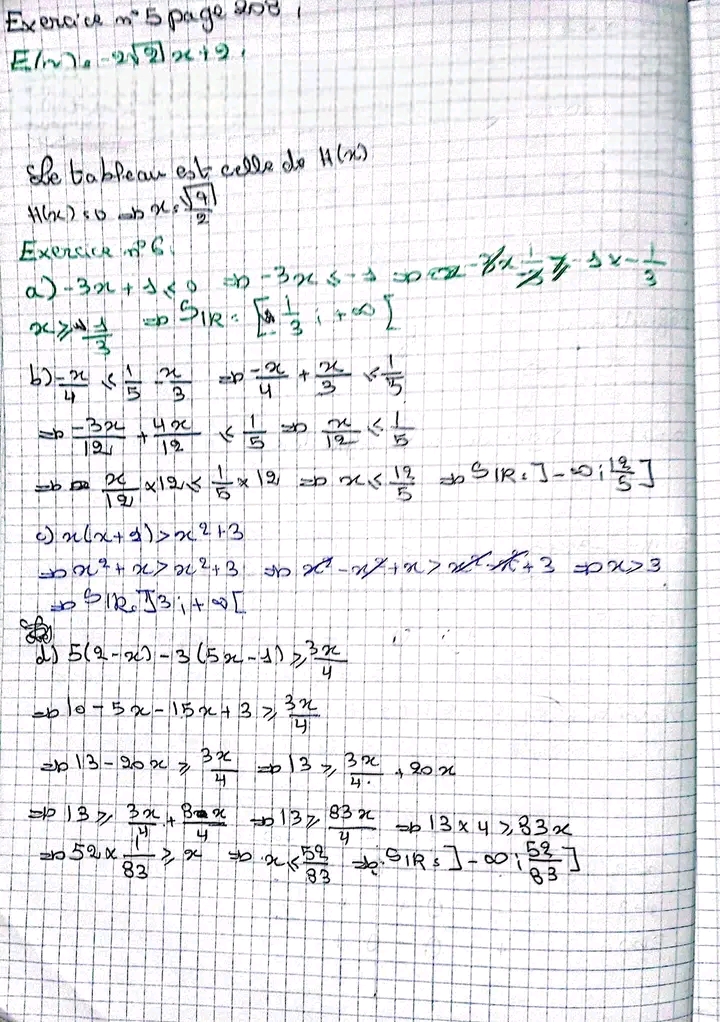 Exercice n° 5 page 208
E(x) = -2√2 x + 2
Le tableau est celle de H(x)
H(x) = 0 ⇒ x = √4/2
Exercice n° 6
a) -3x + 1 ≤ 0 ⇒ -3x ≤ -1 ⇒ -1 × -1/3
x ≥ 1/3 ⇒ SIR = [1/3 ; +∞[
b) -x/4 ≤ 1/5 - x/3 ⇒ -x/4 + x/3 ≤ 1/5
⇒ -3x/12 + 4x/12 ≤ 1/5 ⇒ x/12 ≤ 1/5
⇒ x/12 × 12 ≤ 1/5 × 12 ⇒ x ≤ 12/5 ⇒ SIR = ]-∞ ; 12/5]
c) x(x+1) > x² + 3
⇒ x² + x > x² + 3 ⇒ x² - x² + x > x² - x² + 3 ⇒ x > 3
⇒ SIR = ]3 ; +∞[
d) 5(2-x) - 3(5x-1) ≥ 3x/4
⇒ 10 - 5x - 15x + 3 ≥ 3x/4
⇒ 13 - 20x ≥ 3x/4 ⇒ 13 ≥ 3x/4 + 20x
⇒ 13 ≥ 3x/4 + 80x/4 ⇒ 13 ≥ 83x/4 ⇒ 13 × 4 ≥ 83x
⇒ 52 × 1/83 ≥ x ⇒ x ≤ 52/83 ⇒ SIR = ]-∞ ; 52/83]